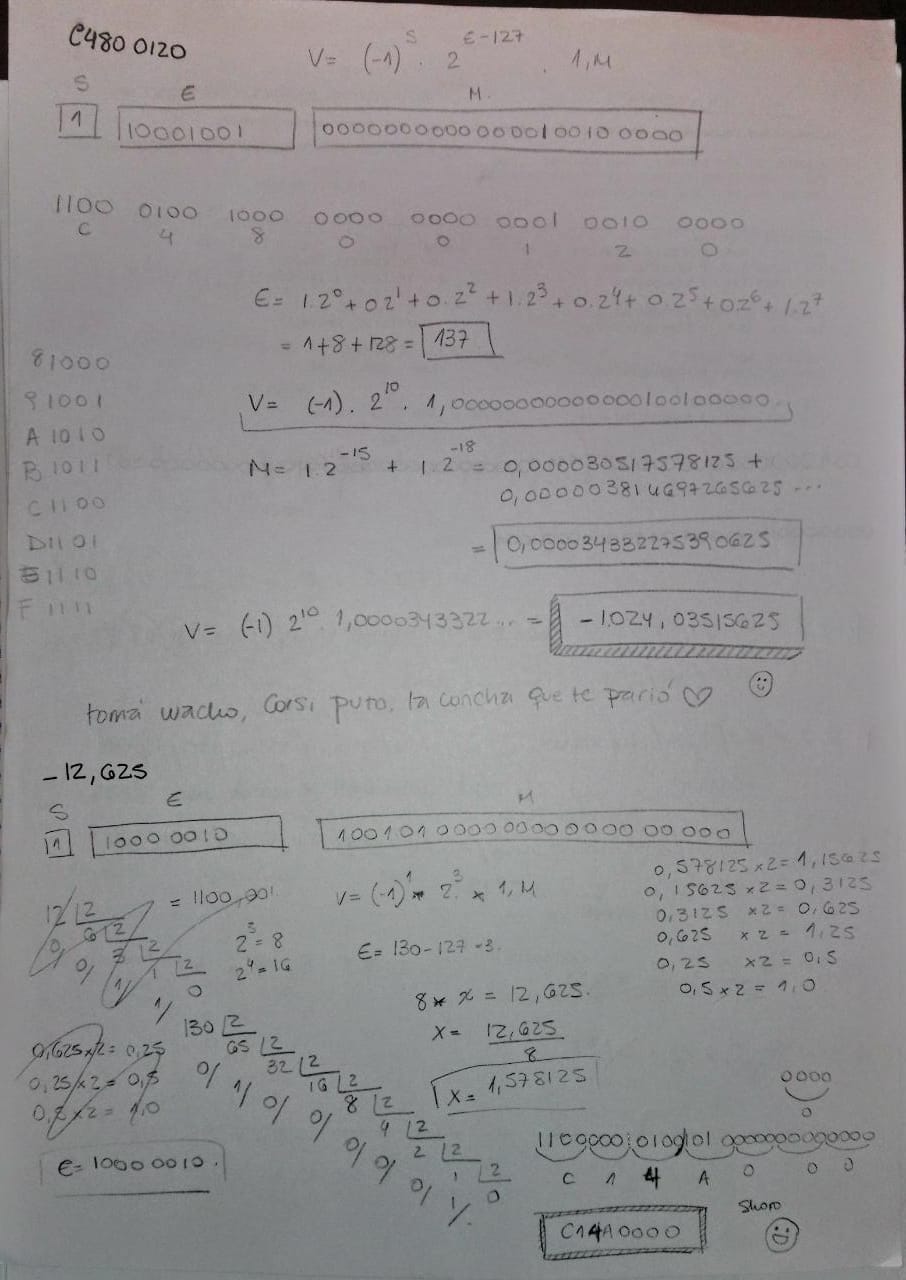 C480 0120
V= (-1)^S . 2^E-127 . 1,M
S E M.
1 10001001 00000000000000100100000
1100 0100 1000 0000 0000 0001 0010 0000
C 4 8 0 0 1 2 0
E= 1.2^0 + 0 2^1 + 0.2^2 + 1.2^3 + 0.2^4 + 0.2^5 + 0.2^6 + 1.2^7
= 1+8+128 = 137
8 1000
9 1001
A 1010
B 1011
C 1100
D 1101
E 1110
F 1111
V= (-1). 2^10 . 1,00000000000000100100000
M= 1.2^-15 + 1.2^-18 = 0,000030517578125 +
0,000003814697265625 ...
= 0,000034332275390625
V= (-1) 2^10. 1,0000343322... = -1024,03515625
tomá wacho, Corsi puto, la concha que te parió ♡
-12,625
S E M
1 1000 0010 10010100000000000000000
12 |2 = 1100,001
6 |2
0 3 |2
0 1 |2
1 0
1
2^3 = 8
2^4 = 16
V= (-1)^1 * 2^3 * 1,M
E= 130-127=3.
8 * x = 12,625.
x= 12,625
8
x= 1,578125
0,578125 x2= 1,15625
0,15625 x2= 0,3125
0,3125 x2= 0,625
0,625 x2= 1,25
0,25 x2= 0,5
0,5 x2= 1,0
0,625x2= 0,25
0,25x2= 0,5
0,5x2= 1,0
130 |2
0 65 |2
1 32 |2
0 16 |2
0 8 |2
0 4 |2
0 2 |2
0 1 |2
1 0
E= 1000 0010.
0000
0
C 1 4 A 0 0 0
C14A0000
Shoro